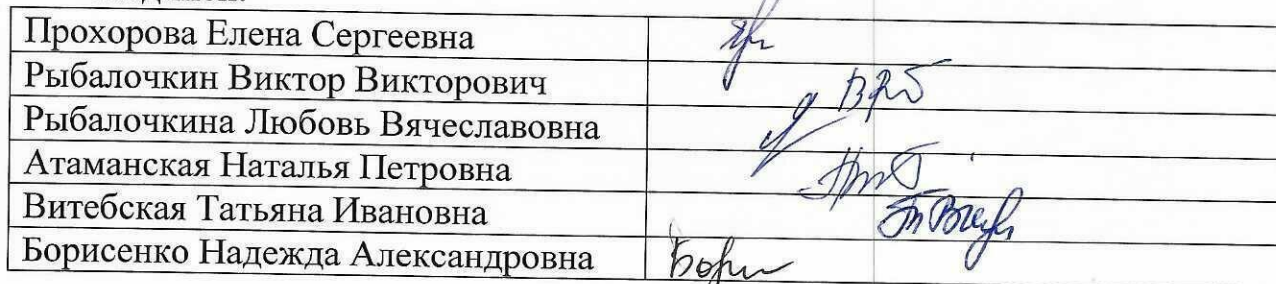 Прохорова Елена Сергеевна
Рыбалочкин Виктор Викторович
Рыбалочкина Любовь Вячеславовна
Атаманская Наталья Петровна
Витебская Татьяна Ивановна
Борисенко Надежда Александровна